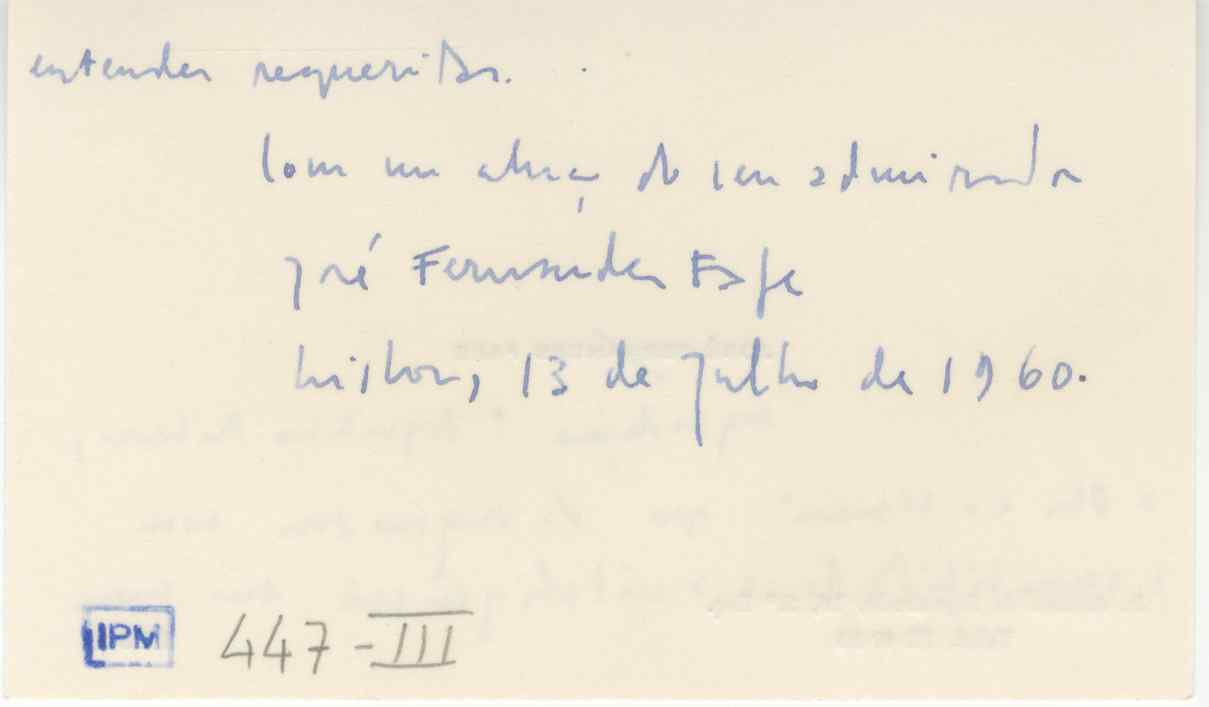 entender
Com um abraço do seu admirador
José Fernandes Fafe
Lisboa, 13 de Julho de 1960.
IPM 447-III